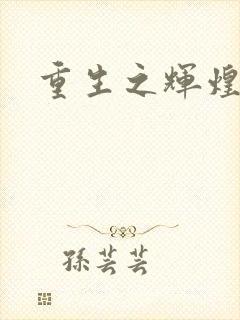 重生之輝煌
孫芸芸